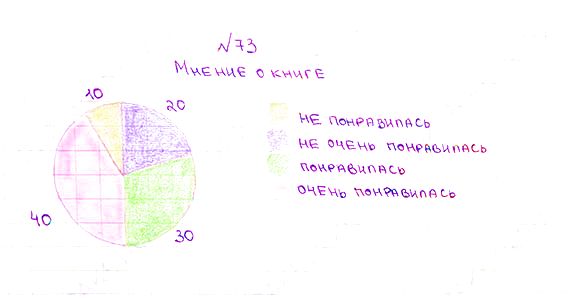 №73
Мнение о книге
10
20
40
30
не понравилась
не очень понравилась
понравилась
очень понравилась